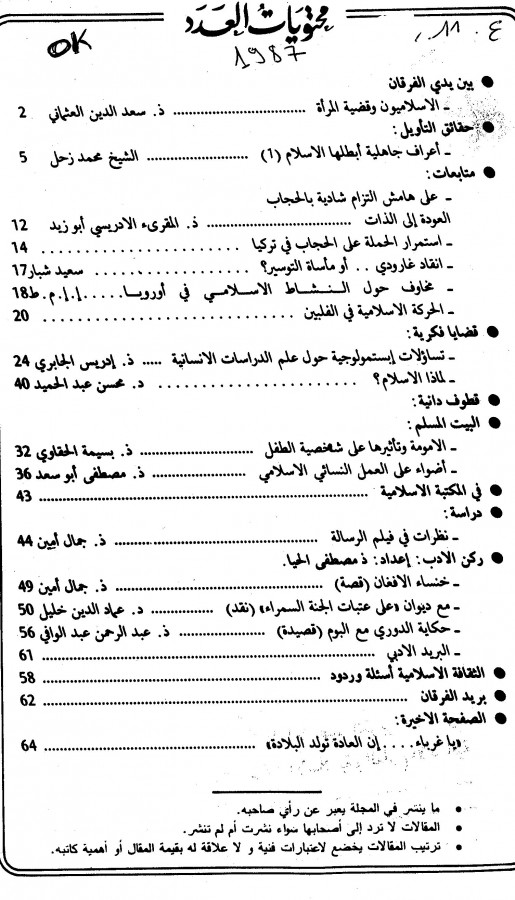 محتويات العدد
ع. 11.
OK
1987
● بين يدي الفرقان
ـ الاسلاميون وقضية المرأة .......................... ذ. سعد الدين العثماني 2
● حقائق التأويل:
ـ أعراف جاهلية أبطلها الاسلام (1) .................... الشيخ محمد زحل 5
● متابعات:
ـ على هامش التزام شادية بالحجاب
العودة إلى الذات .......................... ذ. المقرىء الادريسي أبو زيد 12
ـ استمرار الحملة على الحجاب في تركيا .......................... 14
ـ انقاد غارودي .. أو مأساة التوسير؟ .................... سعيد شبار 17
ـ مخاوف حول النشاط الاسلامي في أوروبا.....إ.إ.م.ط 18
ـ الحركة الاسلامية في الفلبين .......................... 20
● قضايا فكرية:
ـ تساؤلات إبستمولوجية حول علم الدراسات الانسانية ..... ذ. إدريس الجابري 24
ـ لماذا الاسلام؟ .......................... د. محسن عبد الحميد 40
● قطوف دانية:
● البيت المسلم:
ـ الامومة وتأثيرها على شخصية الطفل .................... ذ. بسيمة الحقاوي 32
ـ أضواء على العمل النسائي الاسلامي .................... ذ. مصطفى أبو سعد 36
● في المكتبة الاسلامية .......................... 43
● دراسة:
ـ نظرات في فيلم الرسالة .......................... ذ. جمال أمين 44
● ركن الادب: إعداد: ذ مصطفى الحيا.
ـ خنساء الافغان (قصة) .......................... ذ. جمال أمين 49
ـ مع ديوان «على عتبات الجنة السمراء» (نقد) ............ د. عماد الدين خليل 50
ـ حكاية الدوري مع البوم (قصيدة) .................... ذ. عبد الرحمن عبد الوافي 56
ـ البريد الادبي .......................... 61
● الثقافة الاسلامية أسئلة وردود .......................... 58
● بريد الفرقان .......................... 62
● الصفحة الاخيرة:
«يا غرباء.... إن العادة تولد البلادة» .......................... 64
• ما ينشر في المجلة يعبر عن رأي صاحبه.
• المقالات لا ترد إلى أصحابها سواء نشرت أم لم تنشر.
• ترتيب المقالات يخضع لاعتبارات فنية و لا علاقة له بقيمة المقال أو أهمية كاتبه.